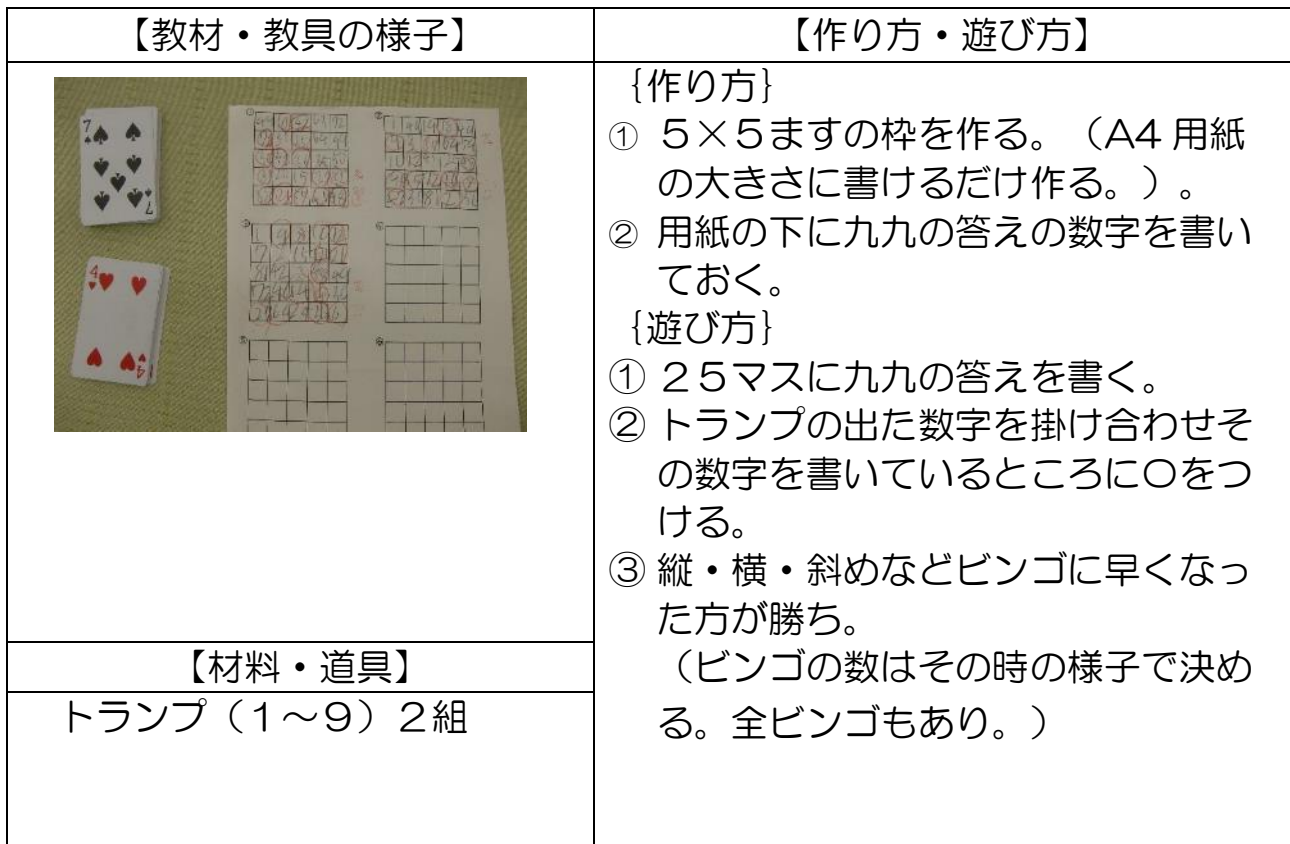 【教材・教具の様子】
【材料・道具】
トランプ（１～９）２組
【作り方・遊び方】
{作り方}
① ５×５ますの枠を作る。（A4 用紙
の大きさに書けるだけ作る。）。
② 用紙の下に九九の答えの数字を書い
ておく。
{遊び方}
① ２５マスに九九の答えを書く。
② トランプの出た数字を掛け合わせそ
の数字を書いているところに〇をつ
ける。
③ 縦・横・斜めなどビンゴに早くなっ
た方が勝ち。
（ビンゴの数はその時の様子で決め
る。全ビンゴもあり。）
7
4